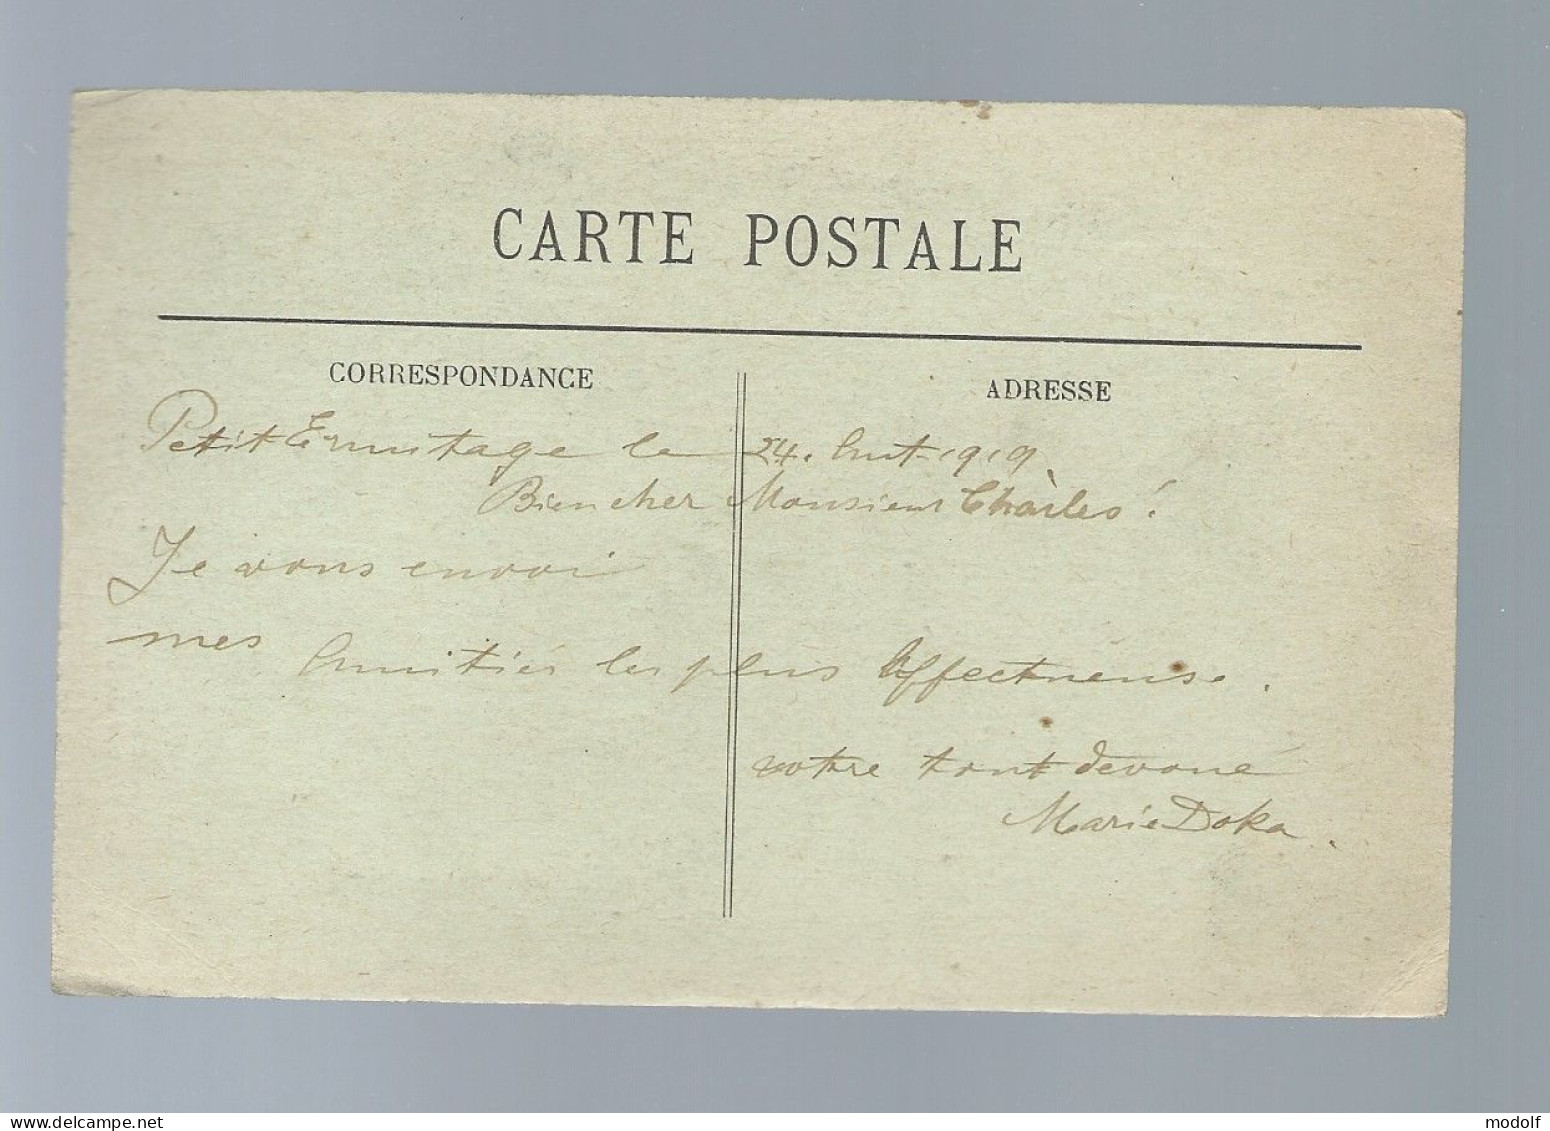 CARTE POSTALE
CORRESPONDANCE
ADRESSE
Petit Ermitage le 24. Aut 1919.
Bien cher Monsieur Charles!
Je vous envoi
mes Amitiés les plus Affectueuse.
votre tout devoué
Marie Doka.
modolf